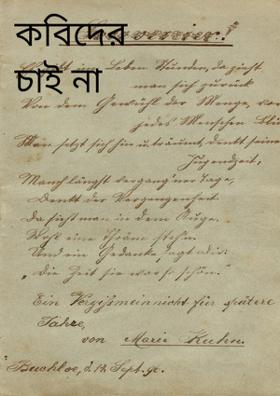 কবিদের
চাই না
im Leben Stunden, da zieht
man sich zurück
Von dem Gewühl der Menge, von
jedes Menschen
Man setzt sich hin u. träumt, denkt seiner
Jugendzeit,
Manch längst vergang'ner Tage,
Denkt der Vergangenheit
Da sieht man in dem Auge
Wohl eine Thräne stehn.
Und ein Gedanke sagt dir:
"Die Zeit sie war so schön."
Ein Vergißmeinnicht für spätere
Jahre,
von Marie Kuhn.
Buchloe, d. Sept.